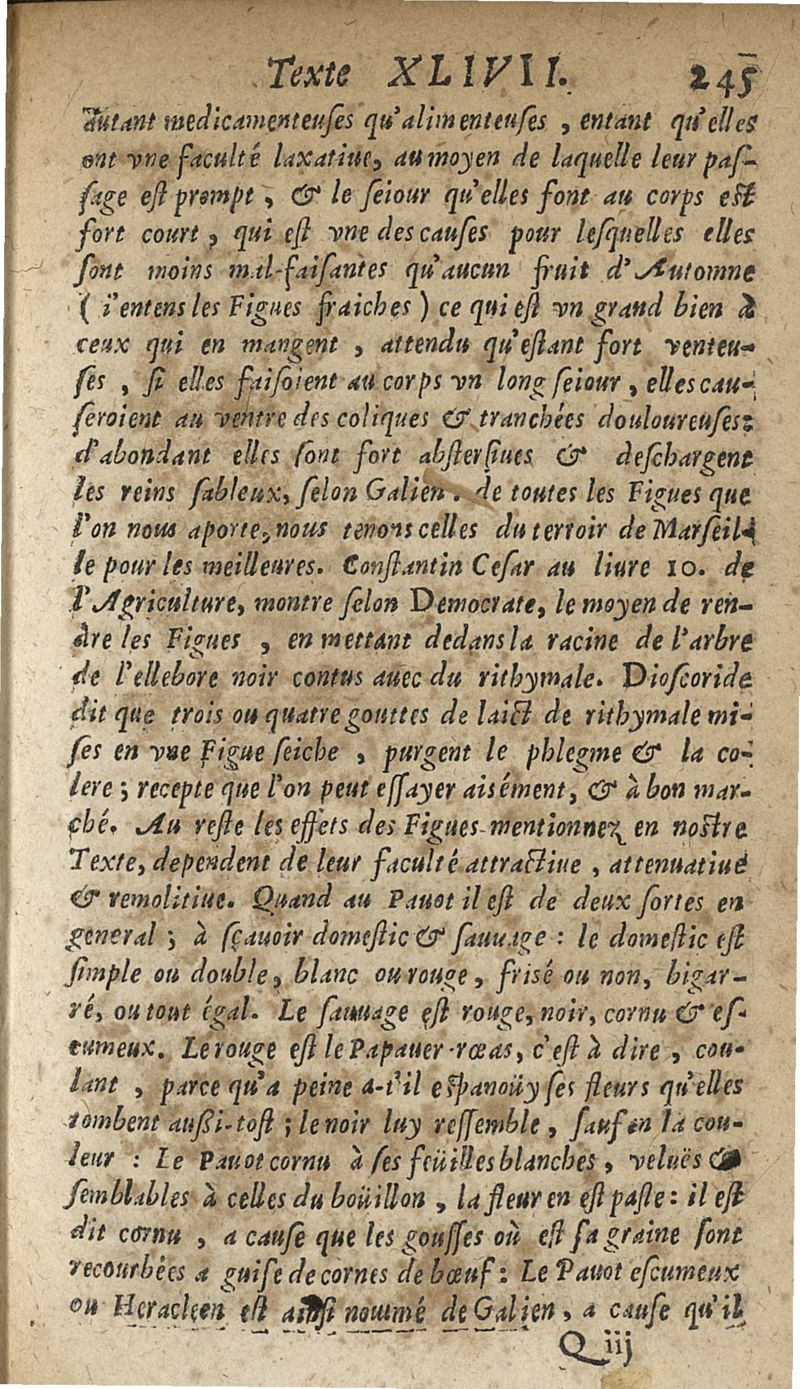 Texte XLIVII. 245
autant medicamenteuſes qu'alimenteuſes, entant qu'elles
ont vne faculté laxatiue, au moyen de laquelle leur paſ-
ſage eſt prompt, & le ſeiour qu'elles font au corps eſt
fort court, qui eſt vne des cauſes pour leſquelles elles
ſont moins mal-faiſantes qu'aucun fruit d'Automne
(i'entens les Figues fraiches) ce qui eſt vn grand bien à
ceux qui en mangent, attendu qu'eſtant fort venteu-
ſes, ſi elles faiſoient au corps vn long ſeiour, elles cau-
ſeroient au ventre des coliques & tranchées douloureuſes:
d'abondant elles ſont fort abſterſiues & deſchargent
les reins ſableux, ſelon Galien. de toutes les Figues que
l'on nous aporte, nous tenons celles du terroir de Marſeil-
le pour les meilleures. Conſtantin Ceſar au liure 10. de
l'Agriculture, montre ſelon Democrate, le moyen de ren-
dre les Figues, en mettant dedans la racine de l'arbre
de l'ellebore noir contus auec du tithymale. Dioſcoride
dit que trois ou quatre gouttes de laict de tithymale mi-
ſes en vne Figue ſeiche, purgent le phlegme & la co-
lere; recepte que l'on peut eſſayer aiſément, & à bon mar-
ché. Au reſte les effets des Figues mentionnez en noſtre
Texte, dependent de leur faculté attractiue, attenuatiue
& remolitiue. Quand au Pauot il eſt de deux ſortes en
general; à ſçauoir domeſtic & ſauuage: le domeſtic eſt
ſimple ou double, blanc ou rouge, friſé ou non, bigar-
ré, ou tout égal. Le ſauuage eſt rouge, noir, cornu & eſ-
cumeux. Le rouge eſt le Papauer-rœas, c'eſt à dire, cou-
lant, parce qu'a peine a-t'il eſpanoüy ſes fleurs qu'elles
tombent auſſi-toſt; le noir luy reſſemble, ſauf en la cou-
leur: Le Pauot cornu à ſes feüilles blanches, veluës &
ſemblables à celles du boüillon, la fleur en eſt paſle: il eſt
dit cornu, a cauſe que les gouſſes où eſt ſa graine ſont
recourbées a guiſe de cornes de bœuf: Le Pauot eſcumeux
ou Heracleen eſt ainſi nommé de Galien, a cauſe qu'il
Q iij